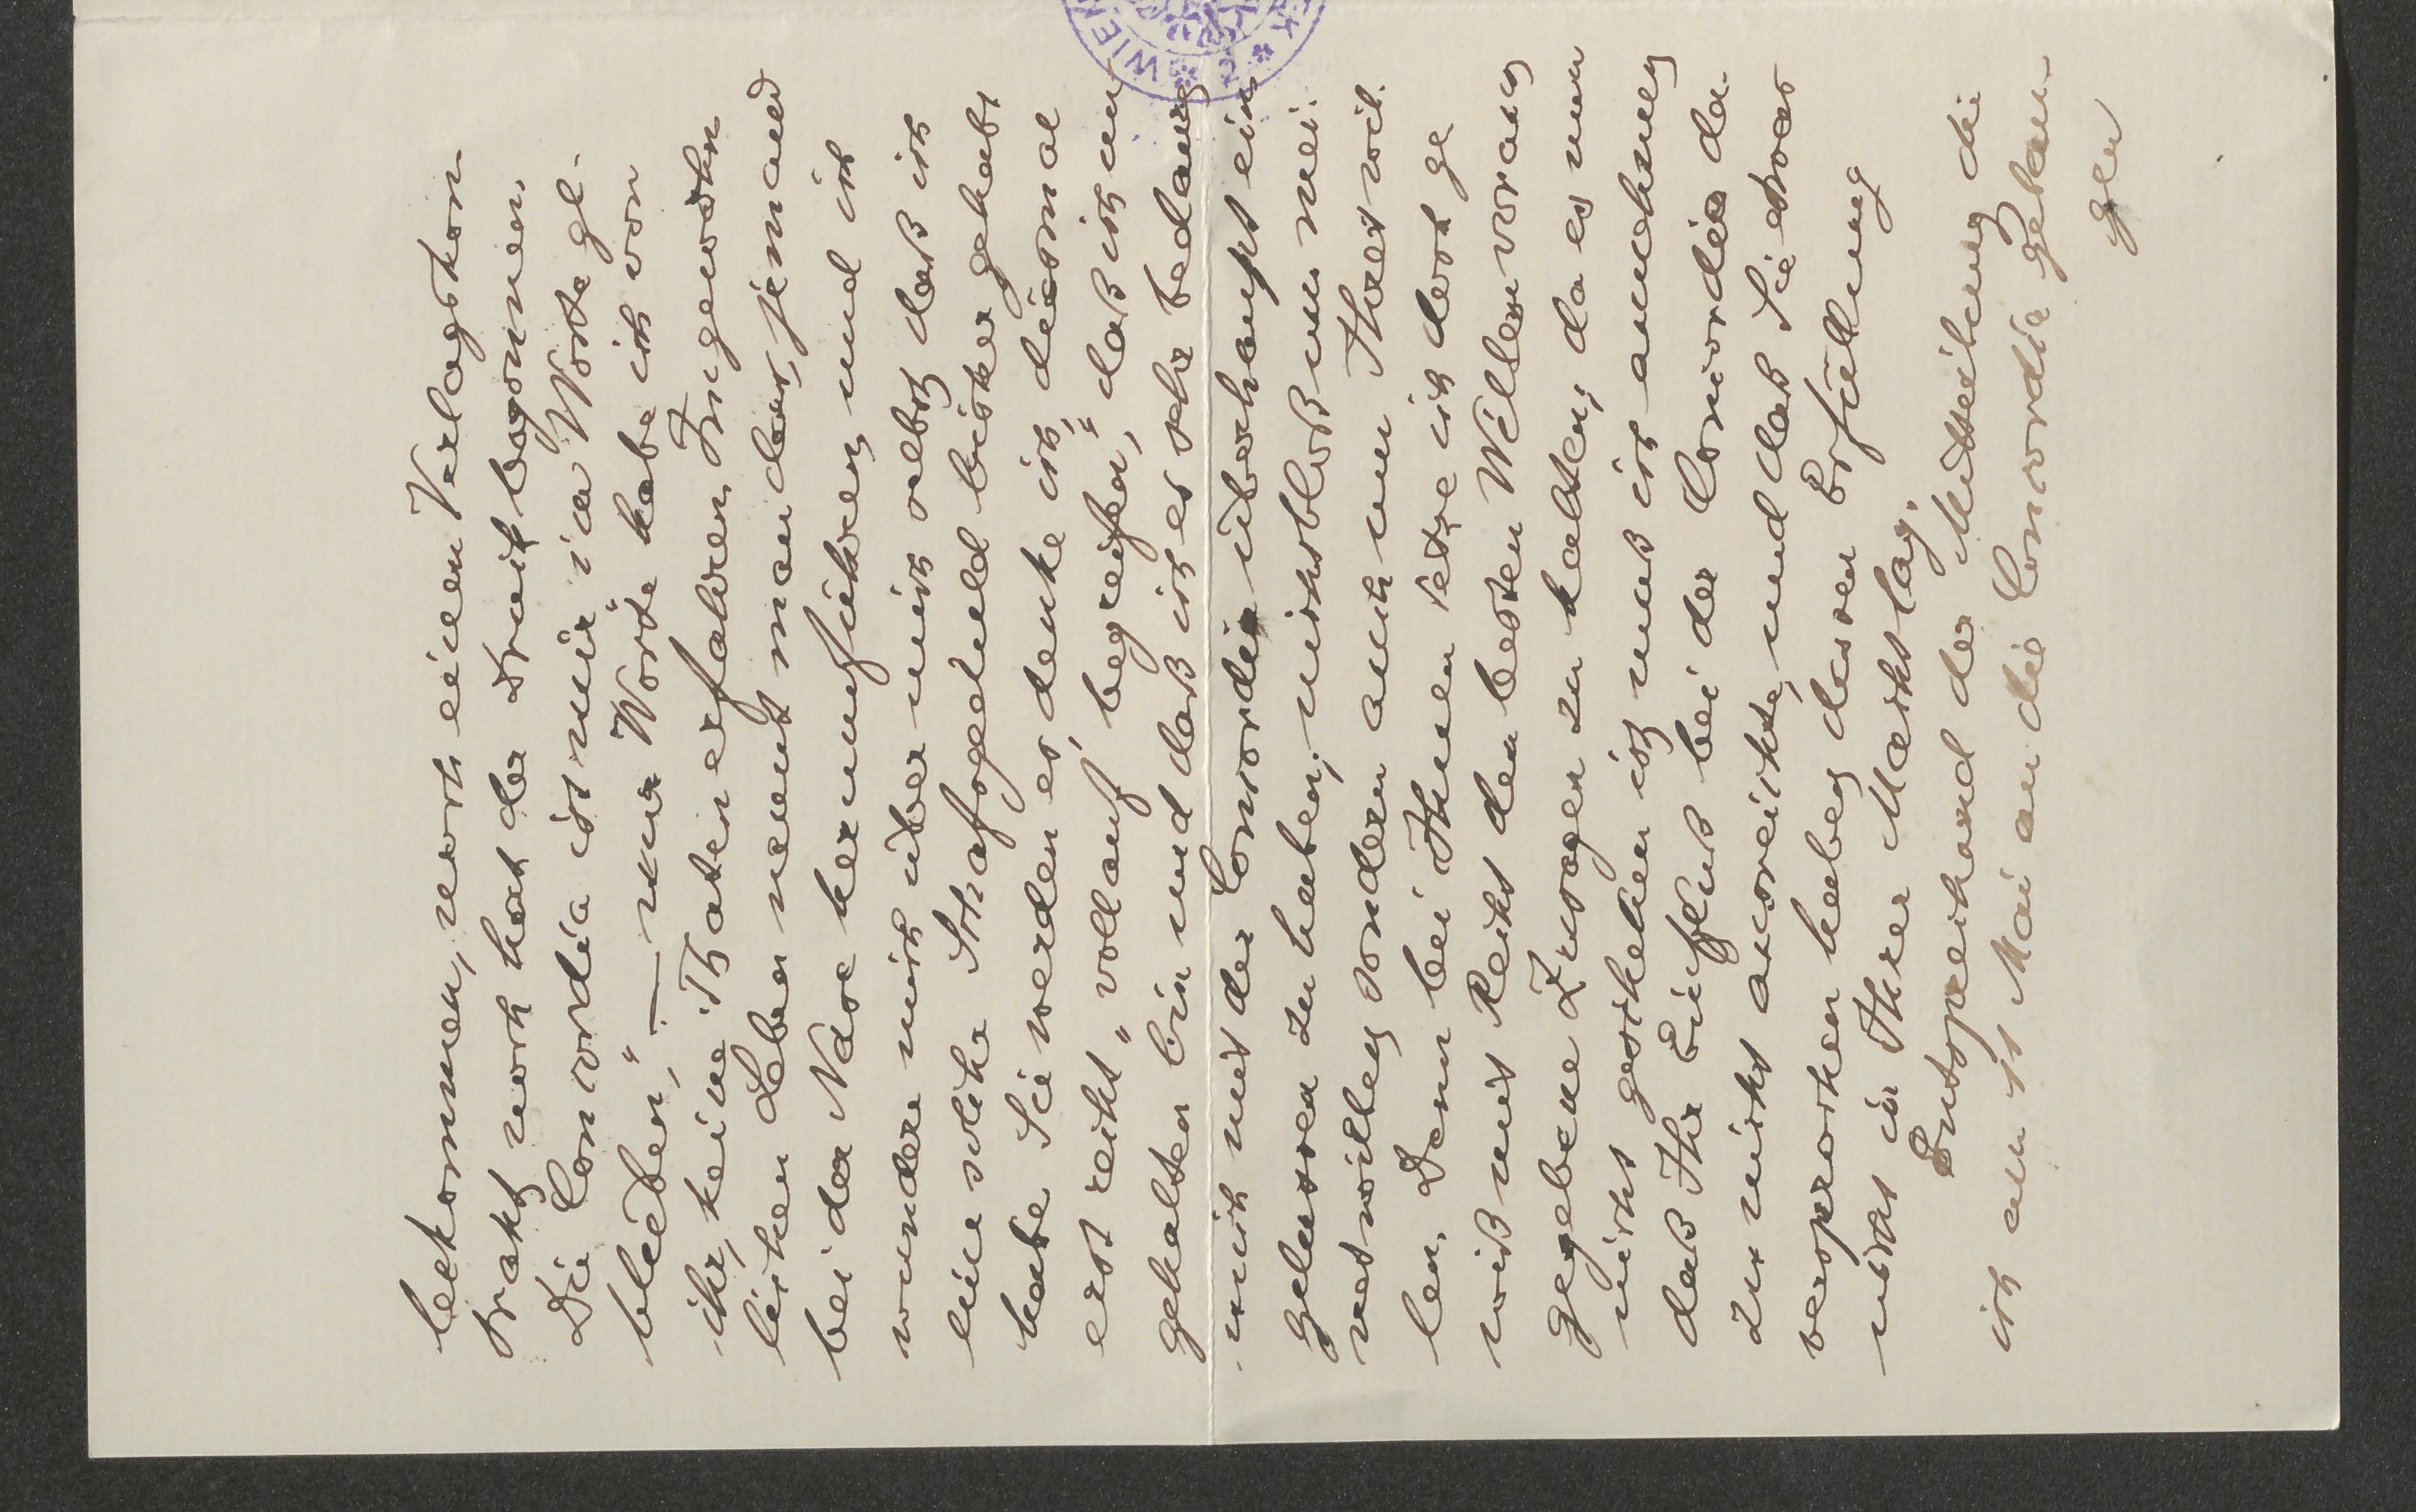 bekommen, noch einen Verlagskon-
trakt, noch hat der Druck begonnen.
Die Concordia ist mir „im Worte ge-
blieben“, — nur Worte habe ich von
ihr, keine Thaten erfahren. Irgendwohn
lichen Leben nennt man das, jemand
bei der Nase herumführen, und ich
wundere mich über mich selbst, daß ich
eine solche Schafsgeduld bisher gehabt
habe. Sie werden es, denke ich, diesmal
erst recht „vollauf begreifen“, daß ich un
gehalten bin und daß ich es sehr bedaure,
mich mit der Concordia überhaupt ein
gelassen zu haben, nicht bloß um mei-
netwillen, sondern auch um Ihretwil-
len. Denn bei Ihnen setze ich doch ge
wiß mit Recht den besten Willen voraus,
gegebene Zusagen zu halten; da es nun
nicht geschehen ist, muß ich annehmen,
daß Ihr Einfluß bei der Concordia da-
zu nicht ausreichte, und daß Sie etwas
versprochen haben, dessen Erfüllung
nicht in Ihrer Macht lag.
Entsprechend der Mittheilung, die
ich am 1t Mai an die Concordia gelan-
gen
WIEN